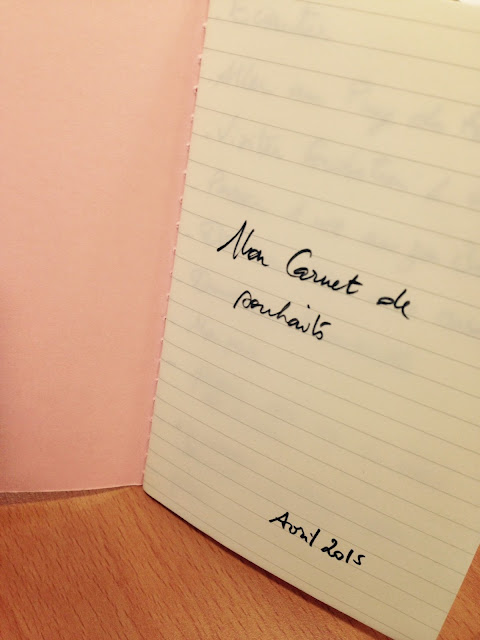 Mon Carnet de
souhaits
Avril 2015